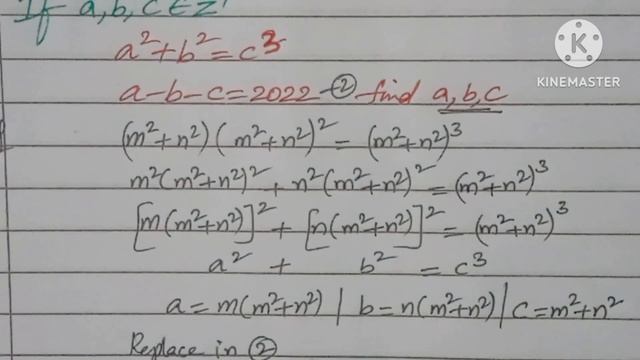 If a, b, c ∈ Z⁺
a² + b² = c³
K
KINEMASTER
a - b - c = 2022 - ② find a, b, c
(m² + n²) (m² + n²)² = (m² + n²)³
m² (m² + n²)² + n² (m² + n²)² = (m² + n²)³
[m (m² + n²)]² + [n (m² + n²)]² = (m² + n²)³
a² + b² = c³
a = m (m² + n²) | b = n (m² + n²) | c = m² + n²
Replace in ②